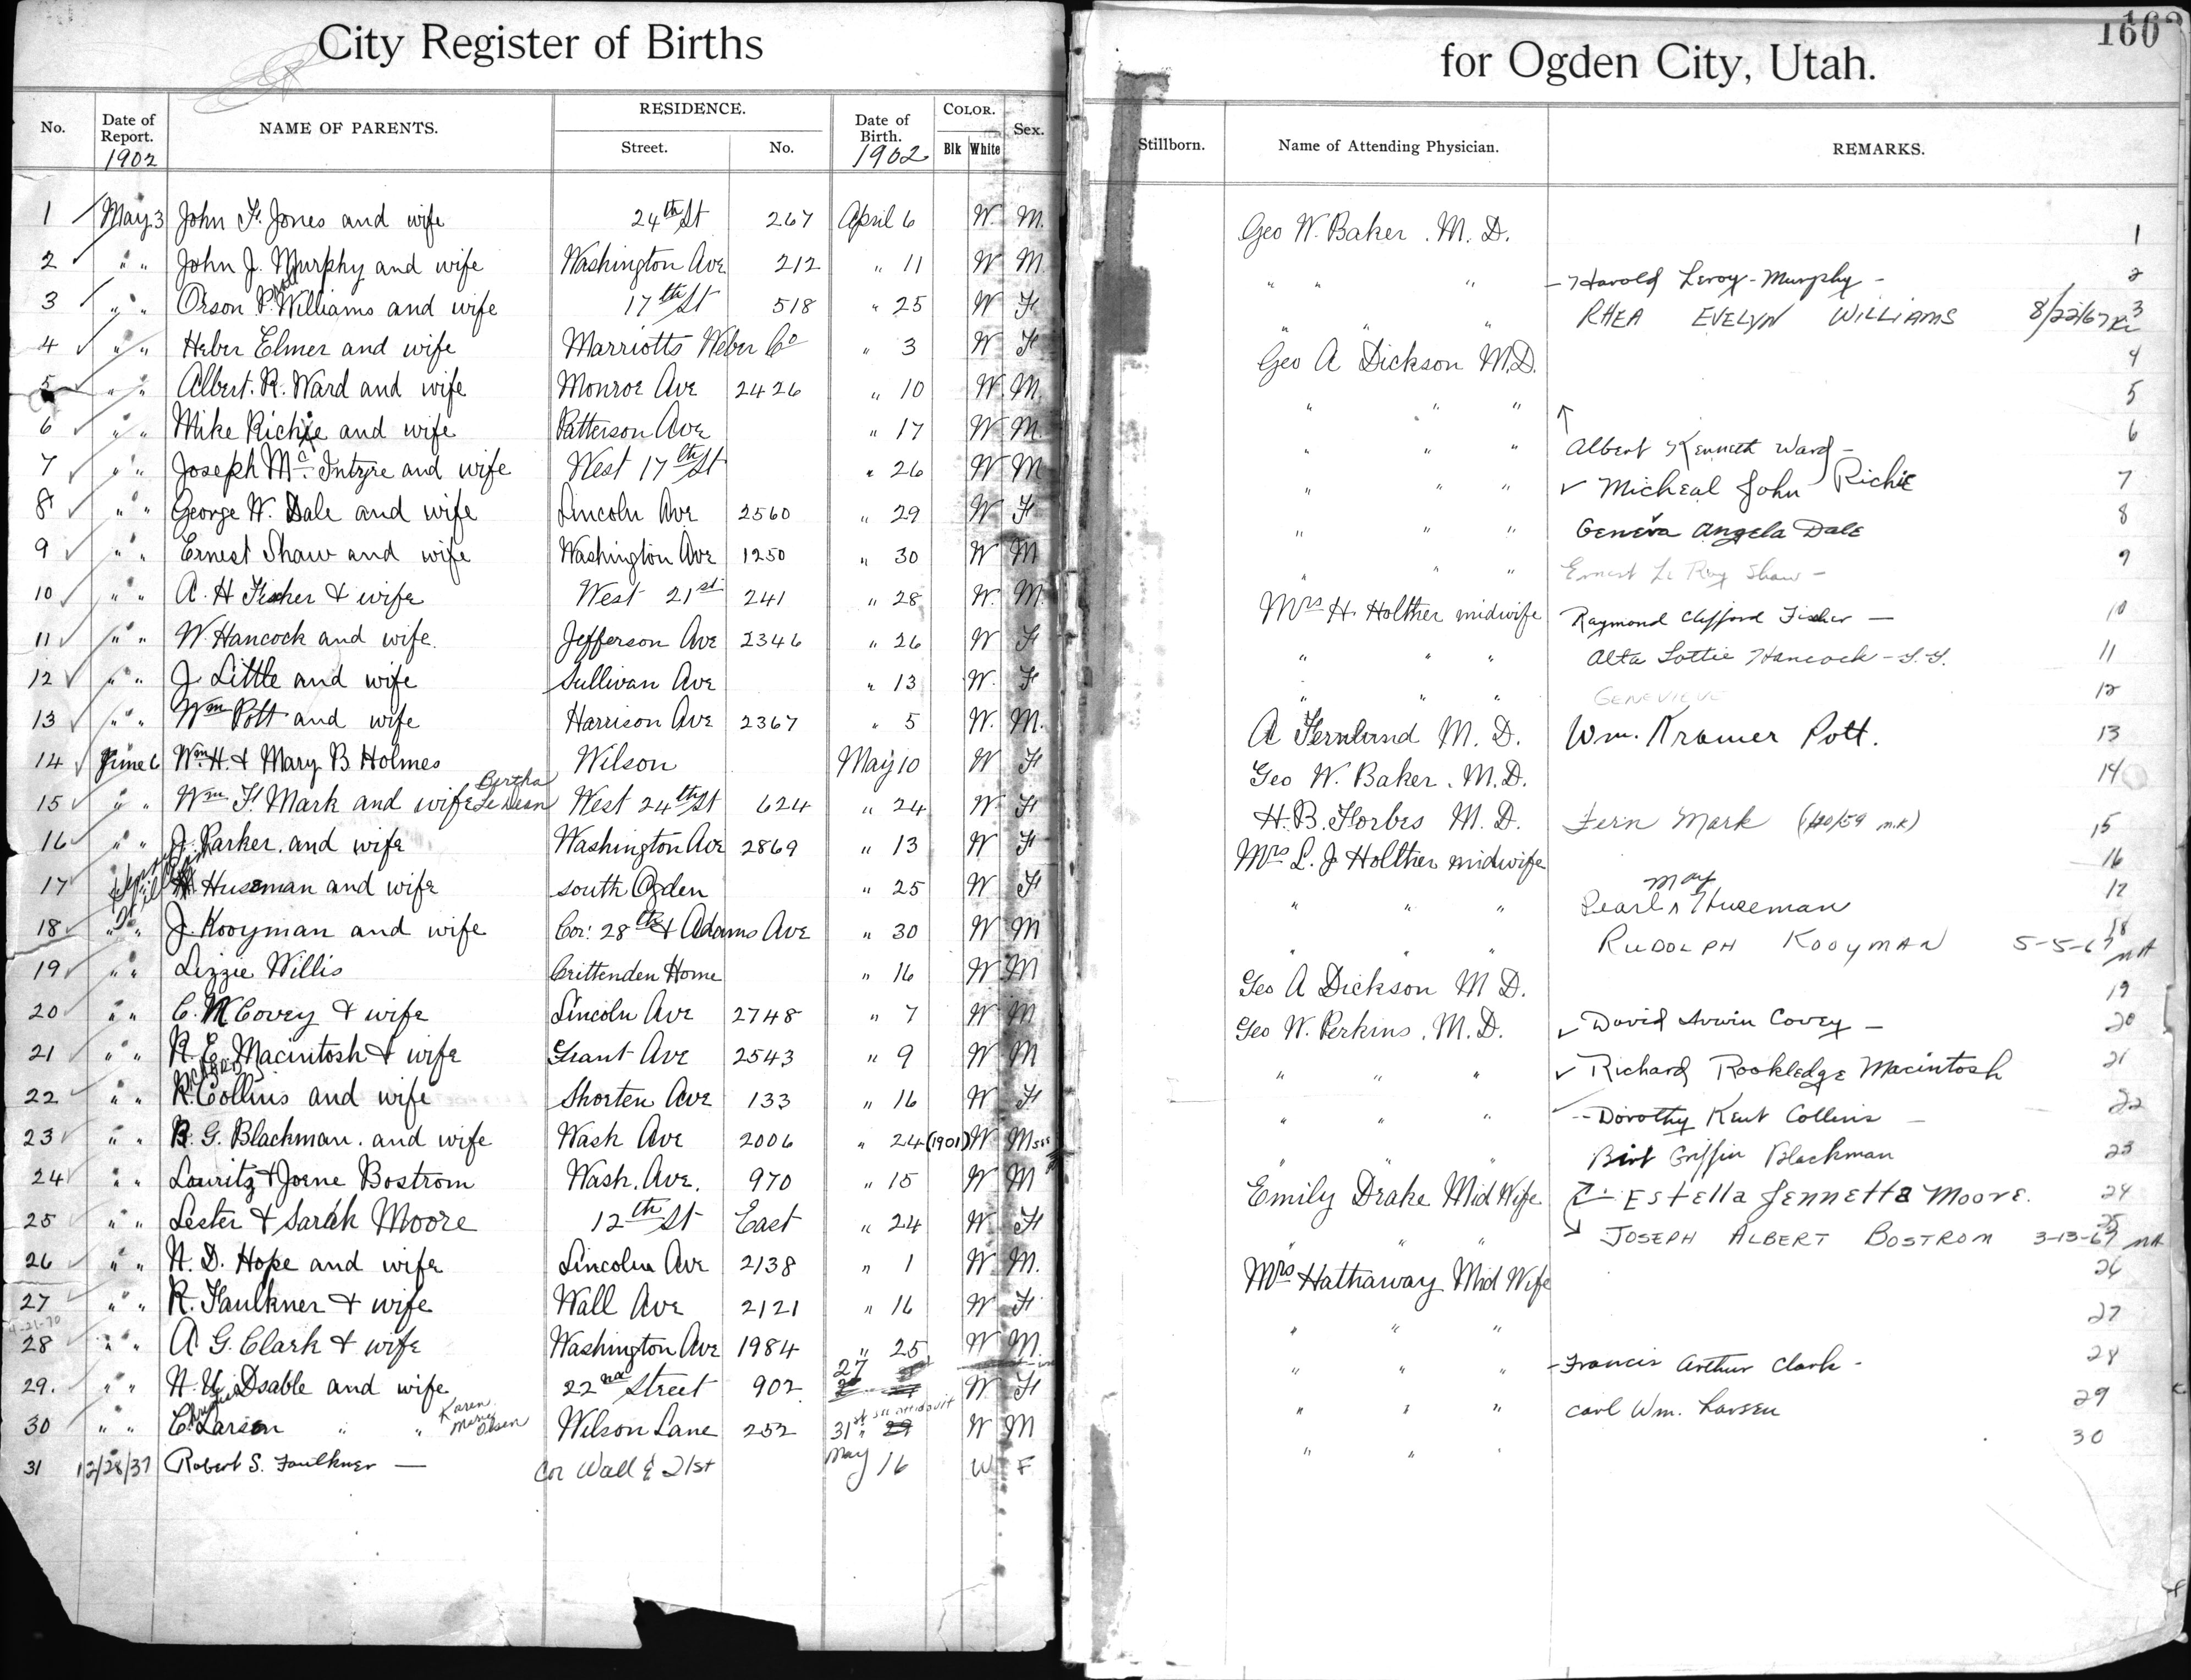 City Register of Births
No. Date of Report. 1902 NAME OF PARENTS. RESIDENCE. Street. No. Date of Birth. 1902 COLOR. Blk White Sex.
1 May 3 John F. Jones and wife 24th St 267 April 6 W. M.
2 " " John J. Murphy and wife Washington Ave 212 " 11 W M
3 " " Orson P. Williams and wife 17th St 518 " 25 W F
4 " " Heber Elmer and wife Marriotts Weber Co " 3 W F
5 " " Albert. R. Ward and wife Monroe Ave 2426 " 10 W. M.
6 " " Mike Richie and wife Patterson Ave " 17 W M.
7 " " Joseph Mc Intyre and wife West 17th St " 26 W M
8 " " George W. Dale and wife Lincoln Ave 2560 " 29 W F
9 " " Ernest Shaw and wife Washington Ave 1250 " 30 W M
10 " " A. H Fisher & wife West 21st 241 " 28 W. M.
11 " " W. Hancock and wife. Jefferson Ave 2346 " 26 W F
12 " " J. Little and wife Sullivan Ave " 13 W. F
13 " " Wm Pott and wife Harrison Ave 2367 " 5 W. M.
14 June 6 Wm H. & Mary B Holmes Wilson May 10 W F
15 " " Wm F. Mark and wife Bertha West 24th St 624 " 24 W. F
16 " " J. Parker. and wife Washington Ave 2869 " 13 W F
17 Huseman and wife south Ogden " 25 W F
18 " " J. Kooyman and wife Cor: 28th & Adams Ave " 30 W M
19 " " Lizzie Willis Crittenden Home " 16 W. M
20 " " C. M Covey & wife Lincoln Ave 2748 " 7 W M
21 " " R. E. Macintosh & wife Grant Ave 2543 " 9 W M
22 " " R. Collins and wife Shorten Ave 133 " 16 W F
23 " " B. G. Blackman. and wife Wash Ave 2006 " 24 (1901) W M
24 " " Lauritz & Joene Bostrom Wash. Ave. 970 " 15 W M
25 " " Lester & Sarah Moore 12th St East " 24 W. F
26 " " N. D. Hope and wife Lincoln Ave 2138 " 1 W M.
27 " " R. Faulkner & wife Wall Ave 2121 " 16 W F
28 " " A. G. Clark & wife Washington Ave 1984 " 25 W M.
29. " " Dsable and wife 22nd Street 902 27 W. F
30 " " C. Larsen " " Karen Marie Olsen Wilson Lane 252 31st see affidavit W M
31 12/28/37 Robert S. Faulkner — Cor Wall & 21st May 16 W F
for Ogden City, Utah.
160
Stillborn. Name of Attending Physician. REMARKS.
Geo W. Baker. M. D. 1
" " " - Harold Leroy - Murphy - 2
" " " RHEA EVELYN WILLIAMS 8/22/67 3
Geo A Dickson M.D. 4
" " " 5
" " " Albert Kenneth Ward - 6
" " " Micheal John Richie 7
" " " Geneva Angela Dale 8
" " " Ernest Le Roy Shaw - 9
Mrs H. Holther midwife Raymond Clifford Fisher — 10
" " " Alta Lottie Hancock - 11
" " " GENEVIEVE 12
A Fernlund M. D. Wm. Kramer Pott. 13
Geo W. Baker. M.D. 14
H. B. Forbes M. D. Fern Mark 15
Mrs L. J Holther midwife 16
" " " Pearl May Huseman 17
" " " RUDOLPH KOOYMAN 5-5-67 18
Geo A Dickson M D. 19
Geo W. Perkins. M.D. David Irwin Covey — 20
" " " Richard Rookledge Macintosh 21
" " " Dorothy Kent Collins 22
" " " Birt Griffin Blackman 23
Emily Drake Mid Wife Estella Jennetta Moore. 24
" " " JOSEPH ALBERT BOSTROM 3-13-67 25
Mrs Hathaway Mid Wife 26
" " " 27
" " " - Francis Arthur Clark - 28
" " " Carl Wm. Larsen 29
" " " 30